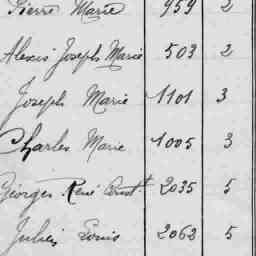 Pierre Marie 959 2
Alexis Joseph Marie 503 2
Joseph Marie 1101 3
Charles Marie 1005 3
Georges René Const^t 2035 5
Julien Louis 2062 5